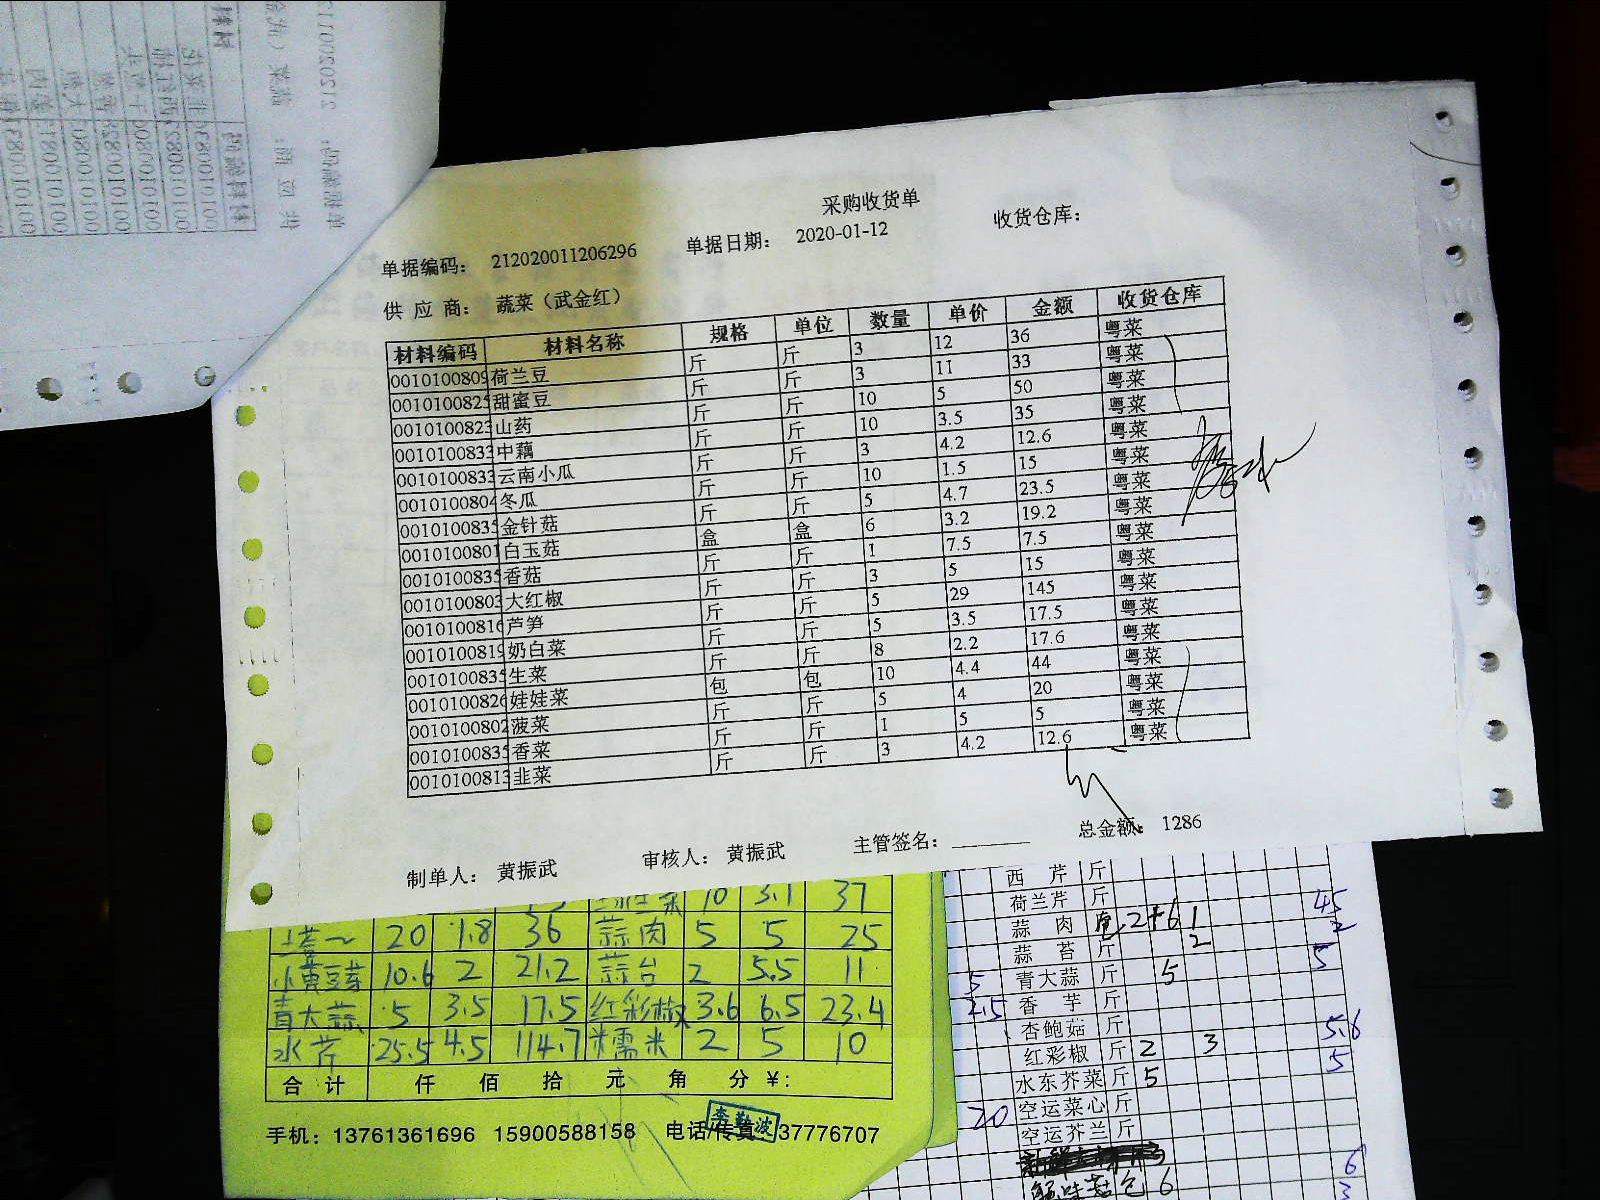 采购收货单
单据编码： 212020011206296 单据日期： 2020-01-12 收货仓库：
供 应 商： 蔬菜（武金红）
材料编码 材料名称 规格 单位 数量 单价 金额 收货仓库
0010100809 荷兰豆 斤 斤 3 12 36 粤菜
001010082 甜蜜豆 斤 斤 3 11 33 粤菜
001010082 山药 斤 斤 10 5 50 粤菜
001010083 中藕 斤 斤 10 3.5 35 粤菜
001010083 云南小瓜 斤 斤 3 4.2 12.6 粤菜
001010080 冬瓜 斤 斤 10 1.5 15 粤菜
001010083 金针菇 斤 斤 5 4.7 23.5 粤菜
001010080 白玉菇 盒 盒 6 3.2 19.2 粤菜
001010083 香菇 斤 斤 1 7.5 7.5 粤菜
001010080 大红椒 斤 斤 3 5 15 粤菜
001010081 芦笋 斤 斤 5 29 145 粤菜
001010081 奶白菜 斤 斤 5 3.5 17.5 粤菜
001010083 生菜 斤 斤 8 2.2 17.6 粤菜
001010082 娃娃菜 包 包 10 4.4 44 粤菜
001010080 菠菜 斤 斤 5 4 20 粤菜
001010083 香菜 斤 斤 1 5 5 粤菜
001010081 韭菜 斤 斤 3 4.2 12.6 粤菜
制单人： 黄振武 审核人： 黄振武 主管签名： 总金额： 1286
10 3.1 37
20 1.8 36 蒜肉 5 5 25
小黄豆芽 10.6 2 21.2 蒜台 2 5.5 11
青大蒜 5 3.5 17.5 红彩椒 3.6 6.5 23.4
水芹 25.5 4.5 114.7 糯米 2 5 10
合 计 仟 佰 拾 元 角 分 ¥:
手机：13761361696 15900588158 电话/传真：37776707
李勤波
西 芹 斤
荷兰芹 斤 45
蒜 肉 2+6 1 2
蒜 苔 斤 2
5 青大蒜 斤 5 5
2.5 香 芋 斤
杏鲍菇 斤
红彩椒 斤 2 3 5.6
水东芥菜 斤 5 5
20 空运菜心 斤
空运芥兰 斤
6
6 3